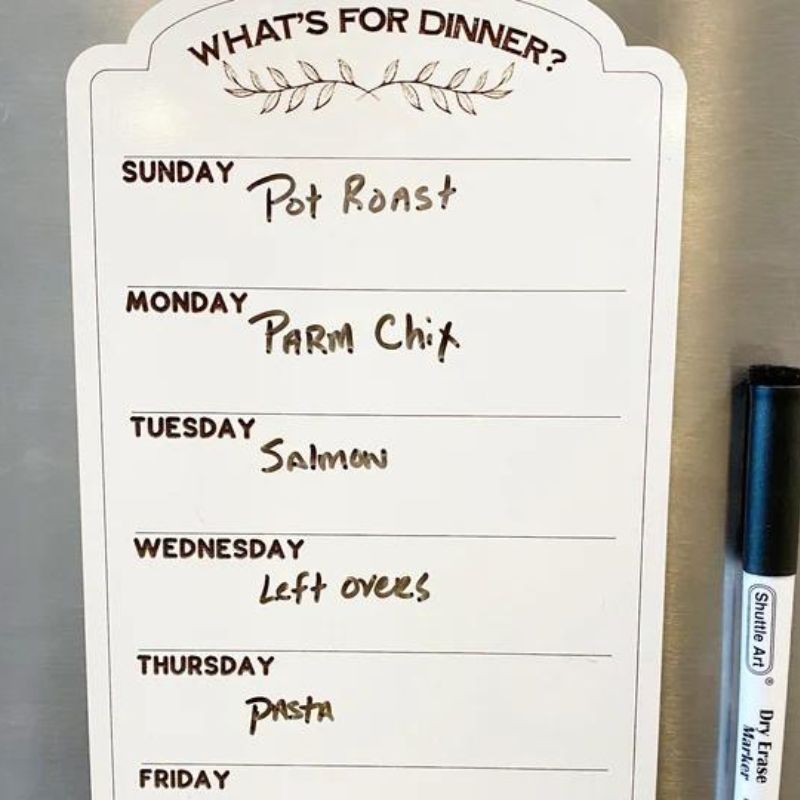 WHAT'S FOR DINNER?
SUNDAY
Pot Roast
MONDAY
PARM Chix
TUESDAY
Salmon
WEDNESDAY
Left overs
THURSDAY
pasta
FRIDAY
Shuttle Art®
Dry Erase
Marker